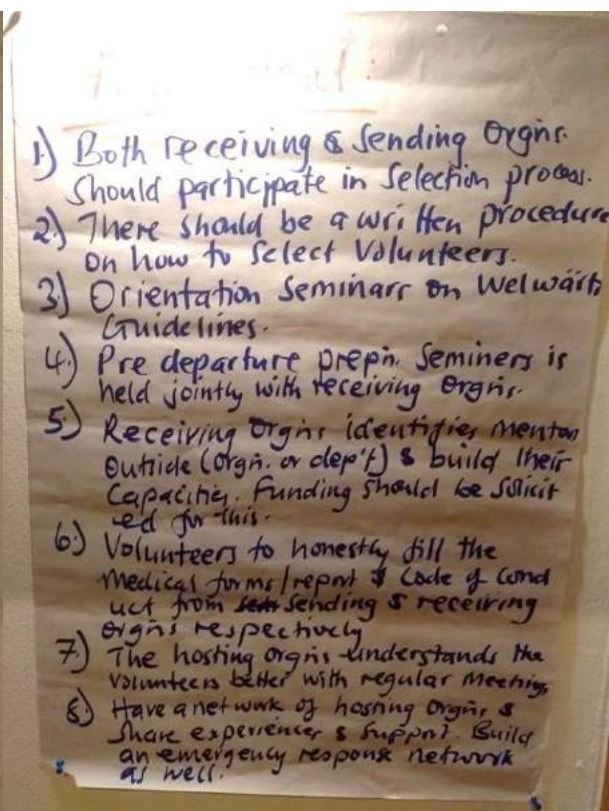 1) Both receiving & Sending Orgns.
Should participate in Selection process.
2) There should be a written procedure
on how to Select Volunteers.
3) Orientation Seminars on Welwärts
Guidelines.
4) Pre departure prepn. Seminers is
held jointly with receiving Orgns.
5) Receiving Orgns identifies mentors
outside (orgn. or dep't) & build their
Capacities. Funding should be Solicit
ed for this.
6) Volunteers to honestly fill the
Medical forms/report & Code of Cond
uct from Sending & receiving
orgns respectively
7) The hosting orgns understands the
volunteers better with regular Meetings
8) Have a network of hosting Orgns &
Share experiences & Support. Build
an emergency response network
as well.